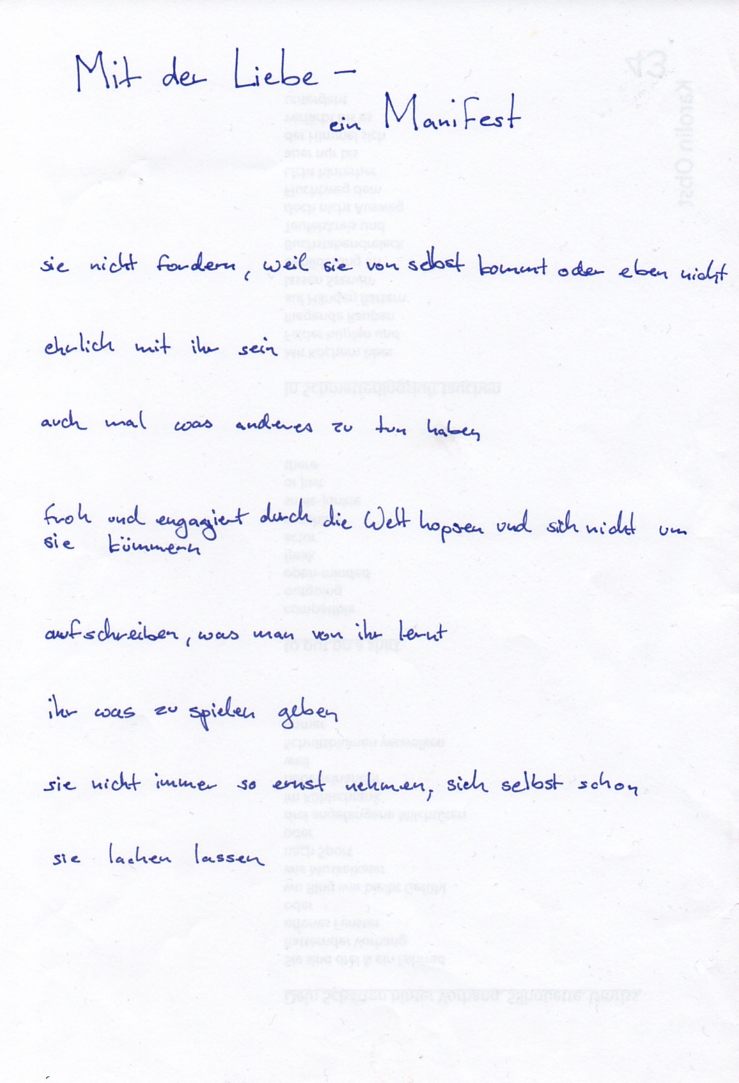 Mit der Liebe –
ein Manifest
sie nicht fordern, weil sie von selbst kommt oder eben nicht
ehrlich mit ihr sein
auch mal was anderes zu tun haben
froh und engagiert durch die Welt hopsen und sich nicht um
sie kümmern
aufschreiben, was man von ihr lernt
ihr was zu spielen geben
sie nicht immer so ernst nehmen, sich selbst schon
sie lachen lassen